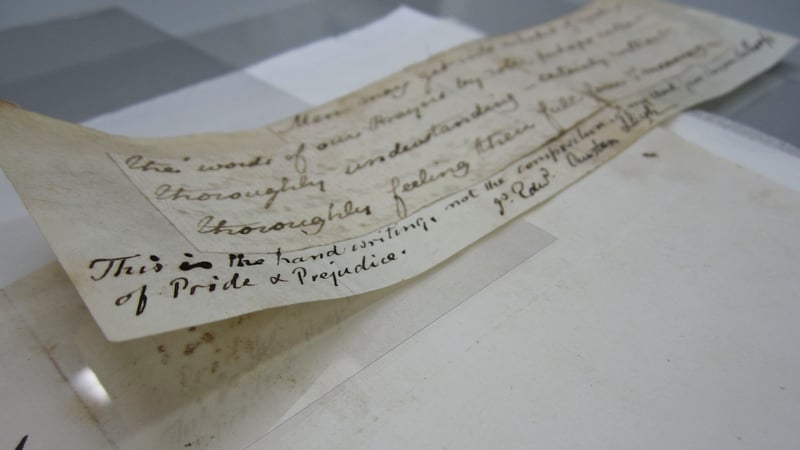 Men may get into a habit of
the words of our Prayers by rote, perhaps without
thoroughly understanding — certainly without
thoroughly feeling their full force & meaning.
This is the hand writing, not the composition of my
of Pride & Prejudice.
Edwd. Austen Leigh